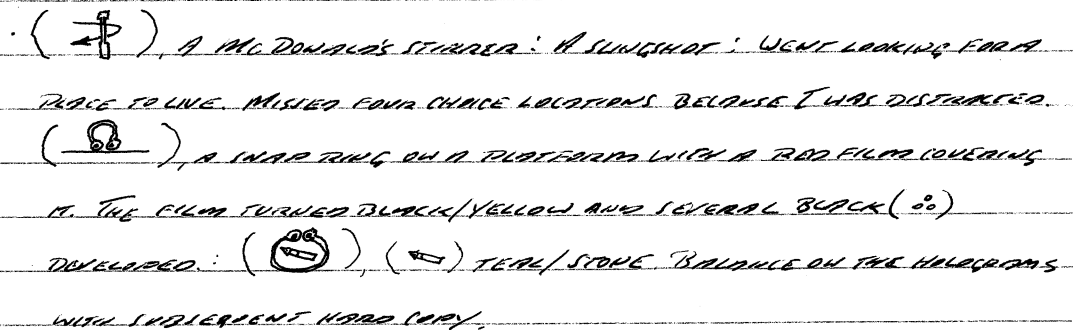 · ( ), A MCDONALD'S STIRRER : A SLINGSHOT : WENT LOOKING FOR A
PLACE TO LIVE. MISSED FOUR CHOICE LOCATIONS BECAUSE I WAS DISTRACTED.
( ), A SNAP RING ON A PLATFORM WITH A RED FILM COVERING
IT. THE FILM TURNED BLACK/YELLOW AND SEVERAL BLACK ( )
DEVELOPED. : ( ), ( ) TEAL/STONE. BALANCE ON THE HOLOGRAMS
WITH SUBSEQUENT HARD COPY.